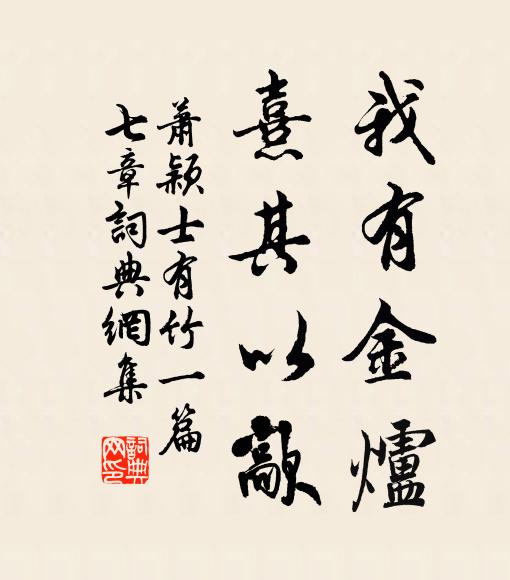 我有金爐
熹其以歊
蕭穎士有竹一篇
七章詞典網集
詞典網印